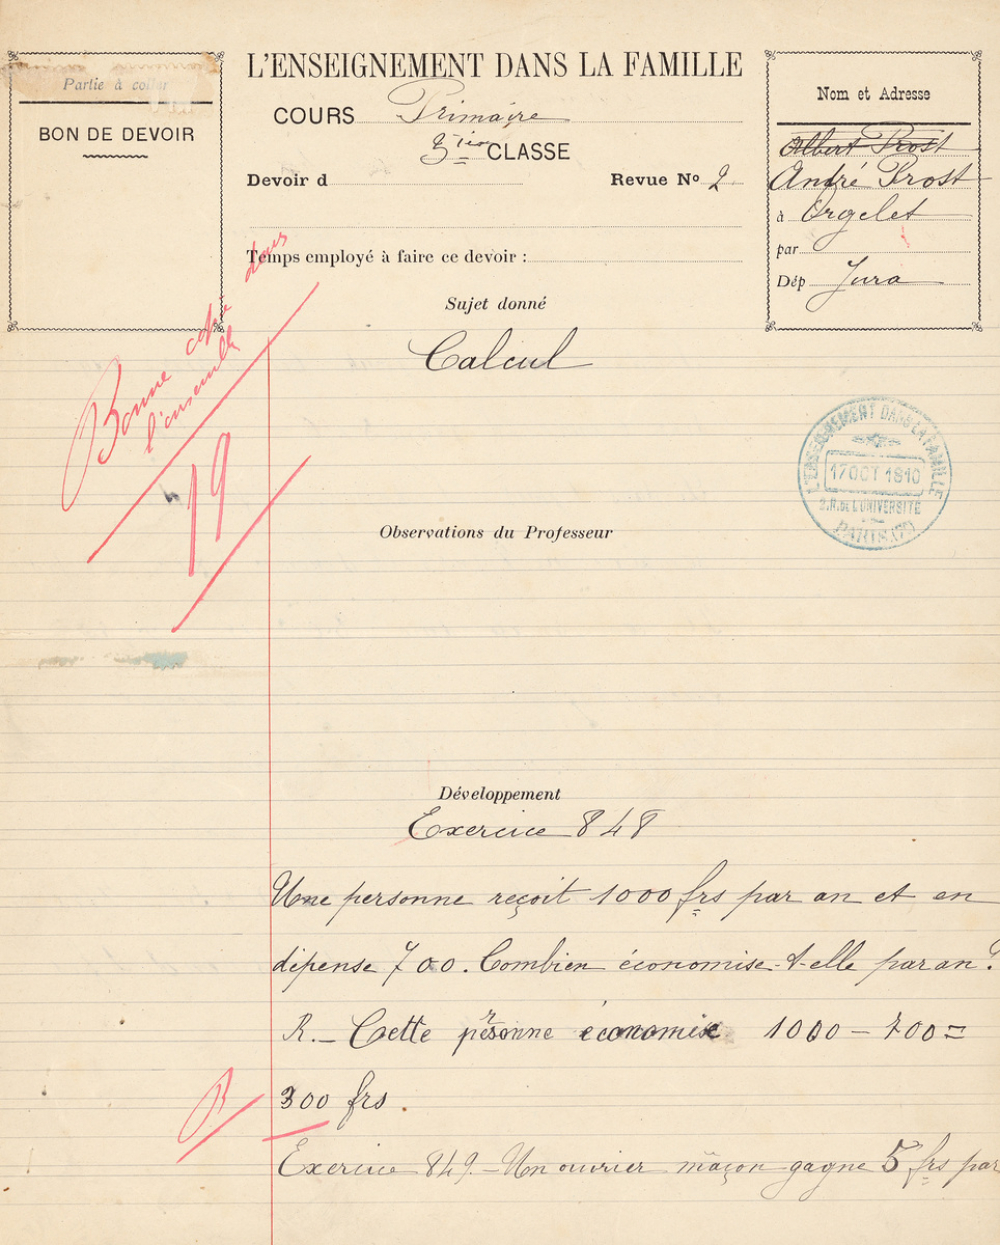 L'ENSEIGNEMENT DANS LA FAMILLE
Partie à coller
BON DE DEVOIR
COURS Primaire
CLASSE
Devoir d
Revue Nº 2
Temps employé à faire ce devoir :
Nom et Adresse
Albert Prost
André Prost
à Orgelet
par
Dép Jura
Sujet donné
Calcul
Bonne copie dans
l'ensemble
19
L'ENSEIGNEMENT DANS LA FAMILLE
17 OCT 1910
2, R. DE L'UNIVERSITÉ
PARIS (7e)
Observations du Professeur
Développement
Exercice 848
Une personne reçoit 1000 frs par an et en
dépense 700. Combien économise-t-elle par an ?
R. – Cette personne économise 1000 – 700 =
B
300 frs.
Exercice 849. – Un ouvrier maçon gagne 5 frs par